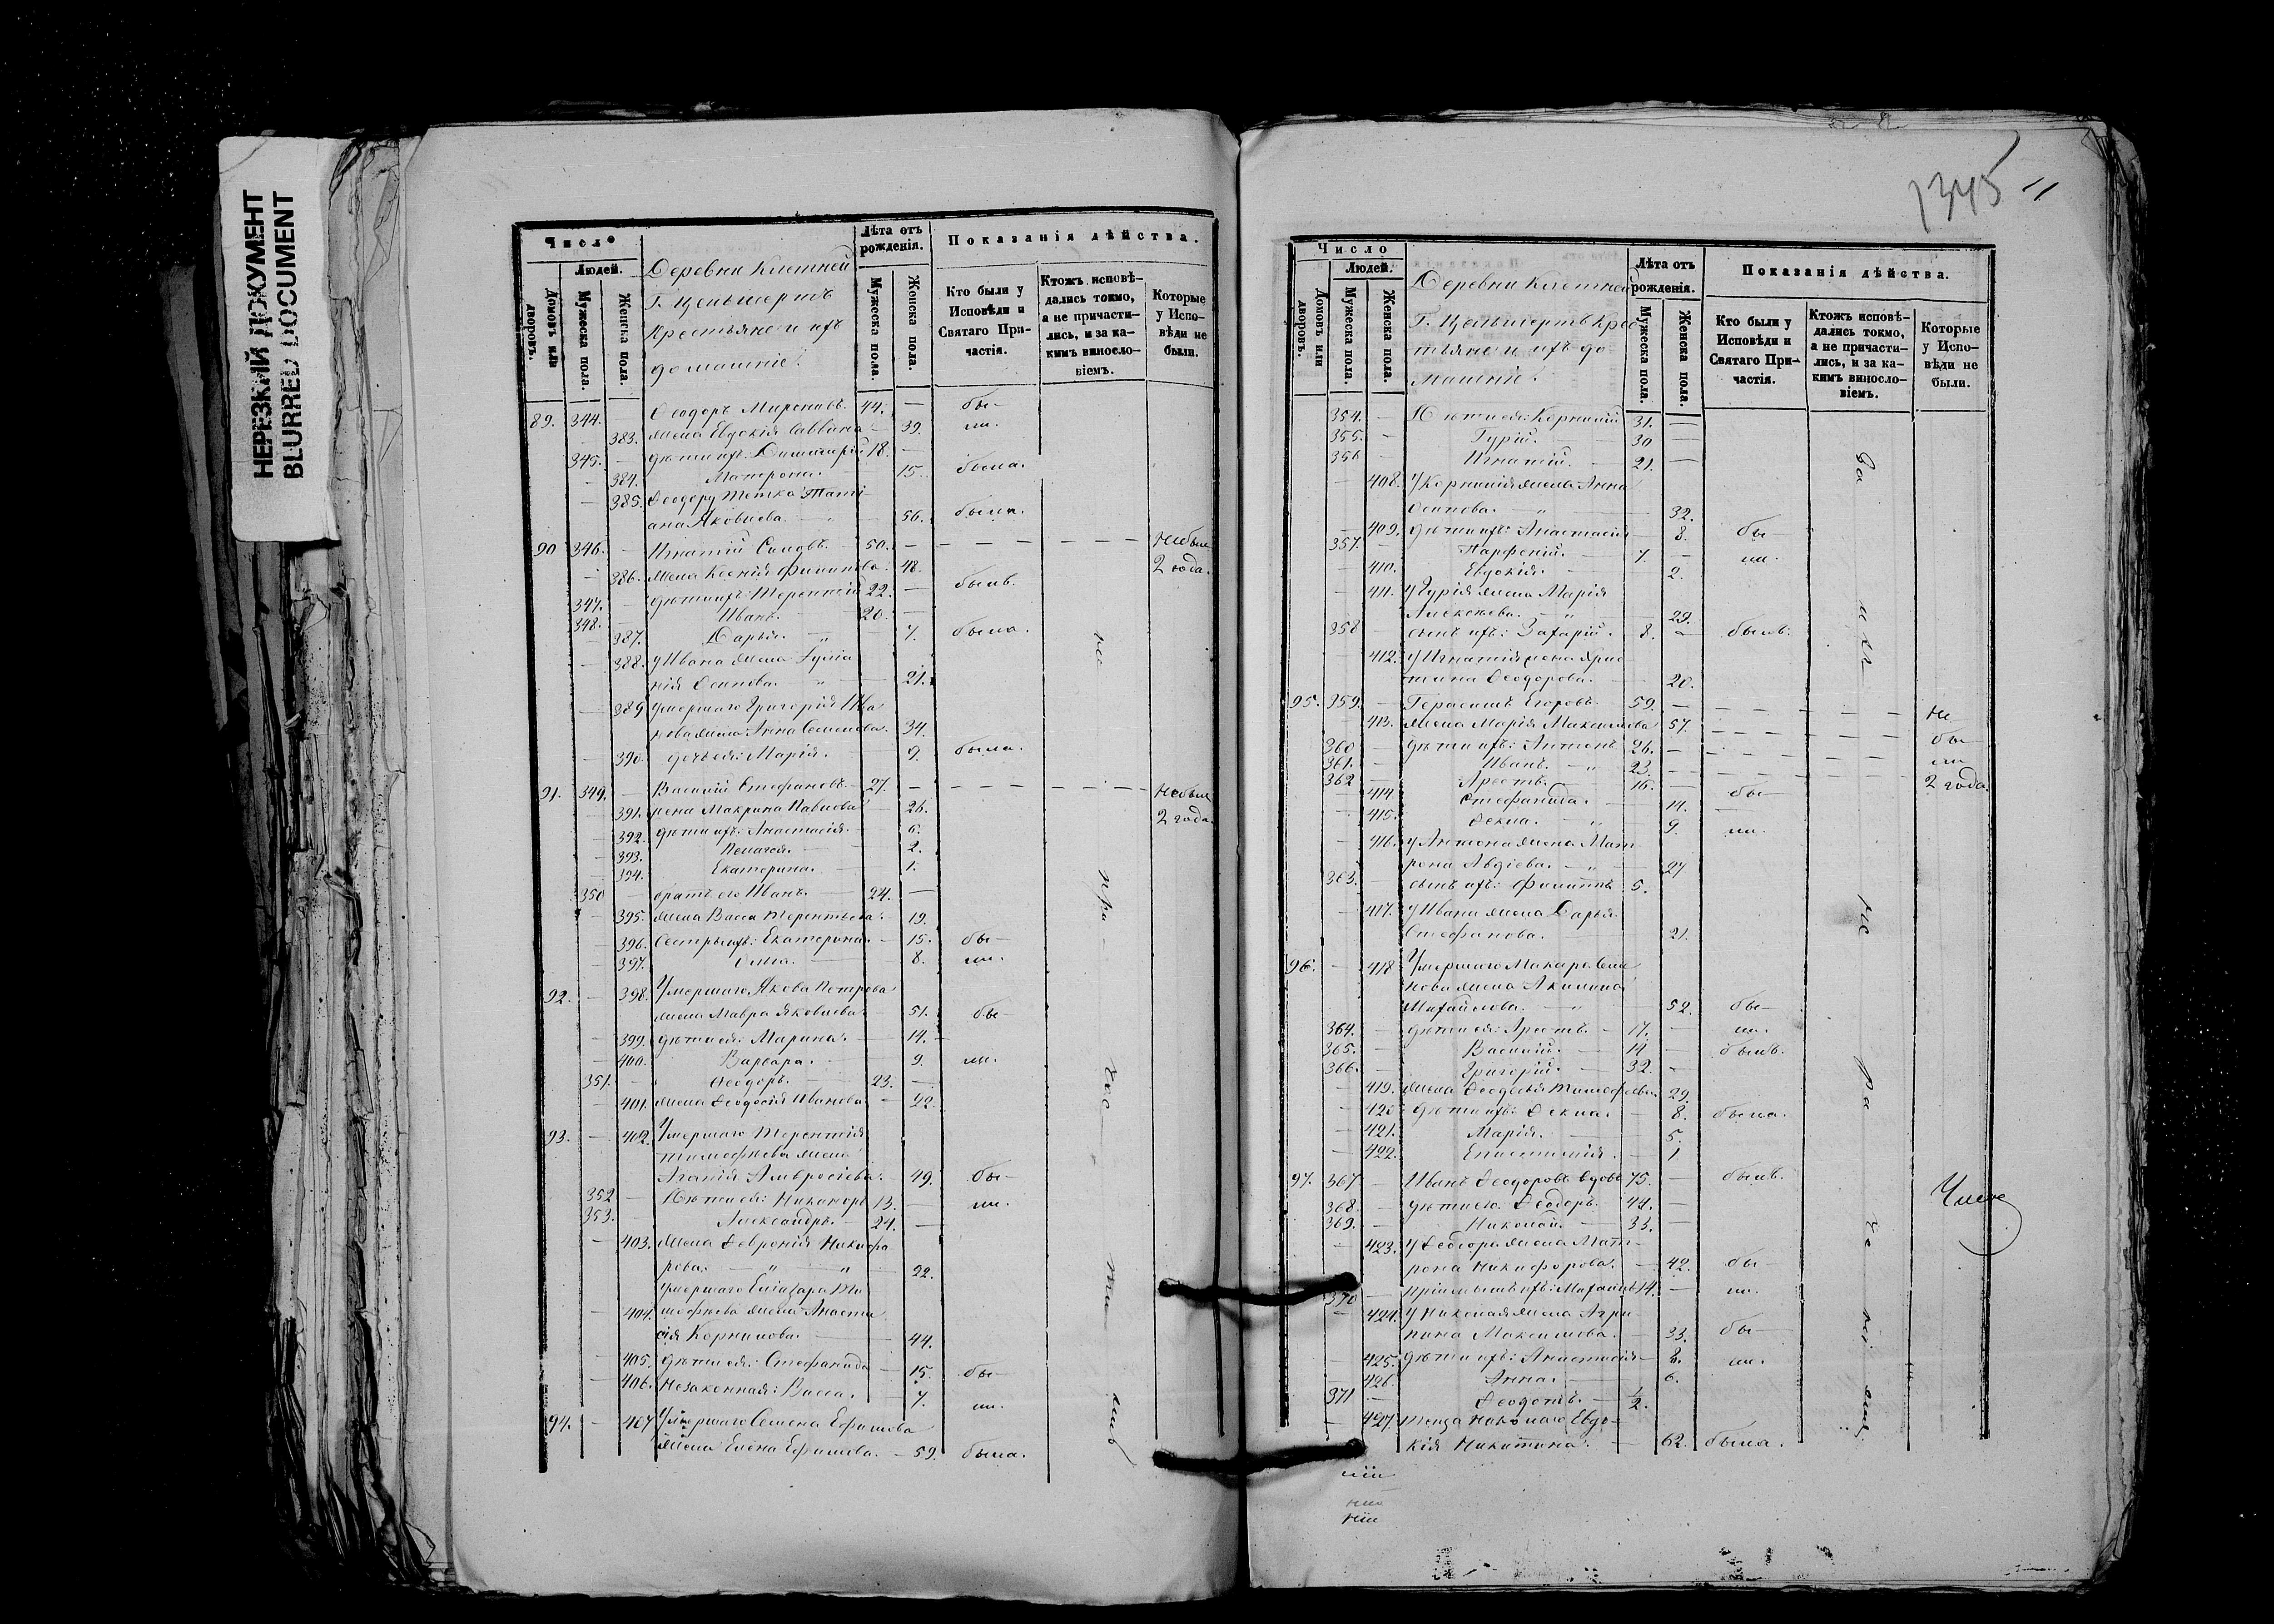 НЕРЕЗКИЙ ДОКУМЕНТ
BLURRED DOCUMENT
Число
Людей.
Домовъ или дворовъ.
Мужеска пола.
Женска пола.
Деревни Клетней
Г.
Крестьяне и ихъ
домашніе:
Лѣта отъ рожденія.
Мужеска пола.
Женска пола.
Показанія дѣйства.
Кто были у Исповѣди и Святаго Причастія.
Ктожъ исповѣдались токмо, а не причастились, и за какимъ винословіемъ.
Которые у Исповѣди не были.
89. 344. — Ѳеодоръ Мироновъ. 44. — бы-
383. жена Евдокія Саввина — 39. ли.
345. — дѣти ихъ: Димитрій 18. —
— 384. Матрона. — 15. была.
— 385. Ѳеодору тетка Тати-
ана Яковлева. — „ — 56. была.
90 346. — Игнатій — 50. — Небыл
— 386. жена Ксенія Филипова. 48. 2 года.
347. — дѣти ихъ: Терентій 22. — былъ.
348. — Иванъ. — 20. —
— 387. Дарья. — „ 7. была.
— 388. у Ивана жена
нія Осипова. „ — 21.
— 389 умершаго Григорія Ива
нова жена Анна Семенова. 34.
— 390. дочь ея: Марія. — 9. была.
91. 349. — Василій Стефановъ. — 27. — Небыл
— 391. жена Макрина Павлова — 26. 2 года.
— 392. дѣти ихъ: Анастасія. — 6.
— 393. Пелагея. — 2.
— 394. Екатерина. — 1.
350 братъ его Иванъ. — 24. —
— 395. жена Васса Терентьева. 19.
— 396. Сестры ихъ: Екатерина. — 15. бы-
— 397. 8. ли.
92. — 398. Умершаго Якова Петрова
жена Мавра Яковлева. — 51. бы-
— 399. дѣти ея: Марина. — 14.
— 400. Варвара. — 9. ли.
351. — Ѳеодоръ. — 23. —
— 401. жена Ѳеодосія Иванова — 22.
93. — 402. Умершаго Терентія
Тимофѣева жена
Агапія Амвросіева. 49. бы-
352 — Дѣти ея: Никаноръ 13. — ли.
353. — Александръ. — 24. —
— 403. жена Ѳевронія Никифо
рова. — „ — „ 22.
Умершаго Еліазара Ти
— 404. мофѣева жена Анаста
сія Корнилова. — 44.
— 405. дѣти ея: Стефанида — 15. бы-
— 406. незаконная: Васса. — 7. ли.
94. — 407 Умершаго Семена Ефимова
жена Елена Ефимова. — 59. была.
не при час ти лись
1345
11
Число
Людей.
Домовъ или дворовъ.
Мужеска пола.
Женска пола.
Деревни Клетней
Г. Крес
тьяне и ихъ до
машніе:
Лѣта отъ рожденія.
Мужеска пола.
Женска пола.
Показанія дѣйства.
Кто были у Исповѣди и Святаго Причастія.
Ктожъ исповѣдались токмо, а не причастились, и за какимъ винословіемъ.
Которые у Исповѣди не были.
354. — Дѣти ея: Корнилій 31. —
355. — Гурій. — 30 —
356 — Игнатій. — 21. —
— 408. У Корнилія жена Анна
Осипова. — „ 32.
— 409. дѣти ихъ: Анастасія — 8. бы
357. — Парѳеній. — 7. — ли.
— 410. Евдокія. — 2.
— 411. у Гурія жена Марія
Алексѣева. — „ 29.
358 — сынъ ихъ: Захарій. — 8. — былъ.
— 412. У Игнатія жена Хрис
тина Ѳеодорова. — 20.
95. 359. — Герасимъ Егоровъ. 59. — Не
— 413. жена Марія Максимова 57. бы
360 — дѣти ихъ: Антонъ 26. — ли
361. — Иванъ. — „ 23. — 2 года.
362 — Арефъ. — 16. —
— 414. Стефанида. — 11. бы-
— 415. Ѳекла. — „ 9. ли.
— 416. у Антона жена Мат
рона Авдіева. — „ 27
363. — сынъ ихъ: Филиппъ 5.
— 417. у Ивана жена Дарья
Стефанова. — 21.
96. — 418 Умершаго Макара Семе
нова жена Акилина
Михайлова. — „ 52. бы-
364. — дѣти ея: Арефъ — 17. — ли.
365. — Василій. — 14 — былъ.
366. — Григорій. — 32. —
— 419. жена Ѳеодосья Тимофеева 29.
— 420 дѣти ихъ: Ѳекла. — 8. была.
— 421. Марія. — 5.
— 422. Епистимія. — 1
97. 367 — Иванъ Ѳеодоровъ вдовъ 75. — былъ.
368. — дѣти его: Ѳеодоръ. — 44. —
369. — Николай. — 33. —
— 423. у Ѳеодора жена Мат-
рона Никифорова. — 42. бы-
370 — пріемышъ ихъ: Михаилъ 14. — ли.
— 424. У Николая жена Агри
пина Максимова. — 33. бы-
— 425. дѣти ихъ: Анастасія — 8. ли.
— 426. Анна. — 6.
371 — Ѳеодотъ. — 1/2.
— 427. теща Николаю Евдо-
кія Никитина. — 62. была.
За
не ра че ні емъ